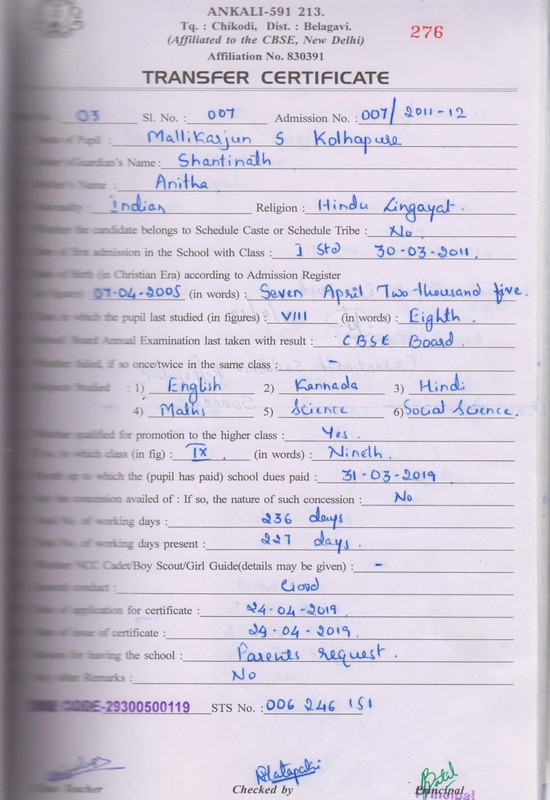 ANKALI-591 213.
Tq. : Chikodi, Dist. : Belagavi.
(Affiliated to the CBSE, New Delhi) 276
Affiliation No. 830391
TRANSFER CERTIFICATE
03 Sl. No. : 007 Admission No. : 007/2011-12
of Pupil : Mallikarjun S Kolhapure
Guardian's Name : Shantinath
Name : Anitha
Indian Religion : Hindu Lingayat.
Whether the candidate belongs to Schedule Caste or Schedule Tribe : No
Date of first admission in the School with Class : I Std 30-03-2011.
Date of Birth (in Christian Era) according to Admission Register
(in figures) 07-04-2005 (in words) : Seven April Two thousand five.
Class in which the pupil last studied (in figures) : VIII (in words) : Eighth.
Board Annual Examination last taken with result : CBSE Board.
Whether failed, if so once/twice in the same class : -
Studied : 1) English 2) Kannada 3) Hindi
4) Maths 5) Science 6) Social Science.
Whether qualified for promotion to the higher class : Yes.
to which class (in fig) : IX. (in words) : Nineth.
Month up to which the (pupil has paid) school dues paid : 31-03-2019
Any fee concession availed of : If so, the nature of such concession : No
Total No. of working days : 236 days
Total No. of working days present : 227 days.
Whether NCC Cadet/Boy Scout/Girl Guide(details may be given) : -
General conduct : Good
Date of application for certificate : 24-04-2019
Date of issue of certificate : 29-04-2019.
Reason for leaving the school : Parents request.
Any other Remarks : No
CODE-29300500119 STS No. : 006 246 151
Class Teacher Checked by Principal